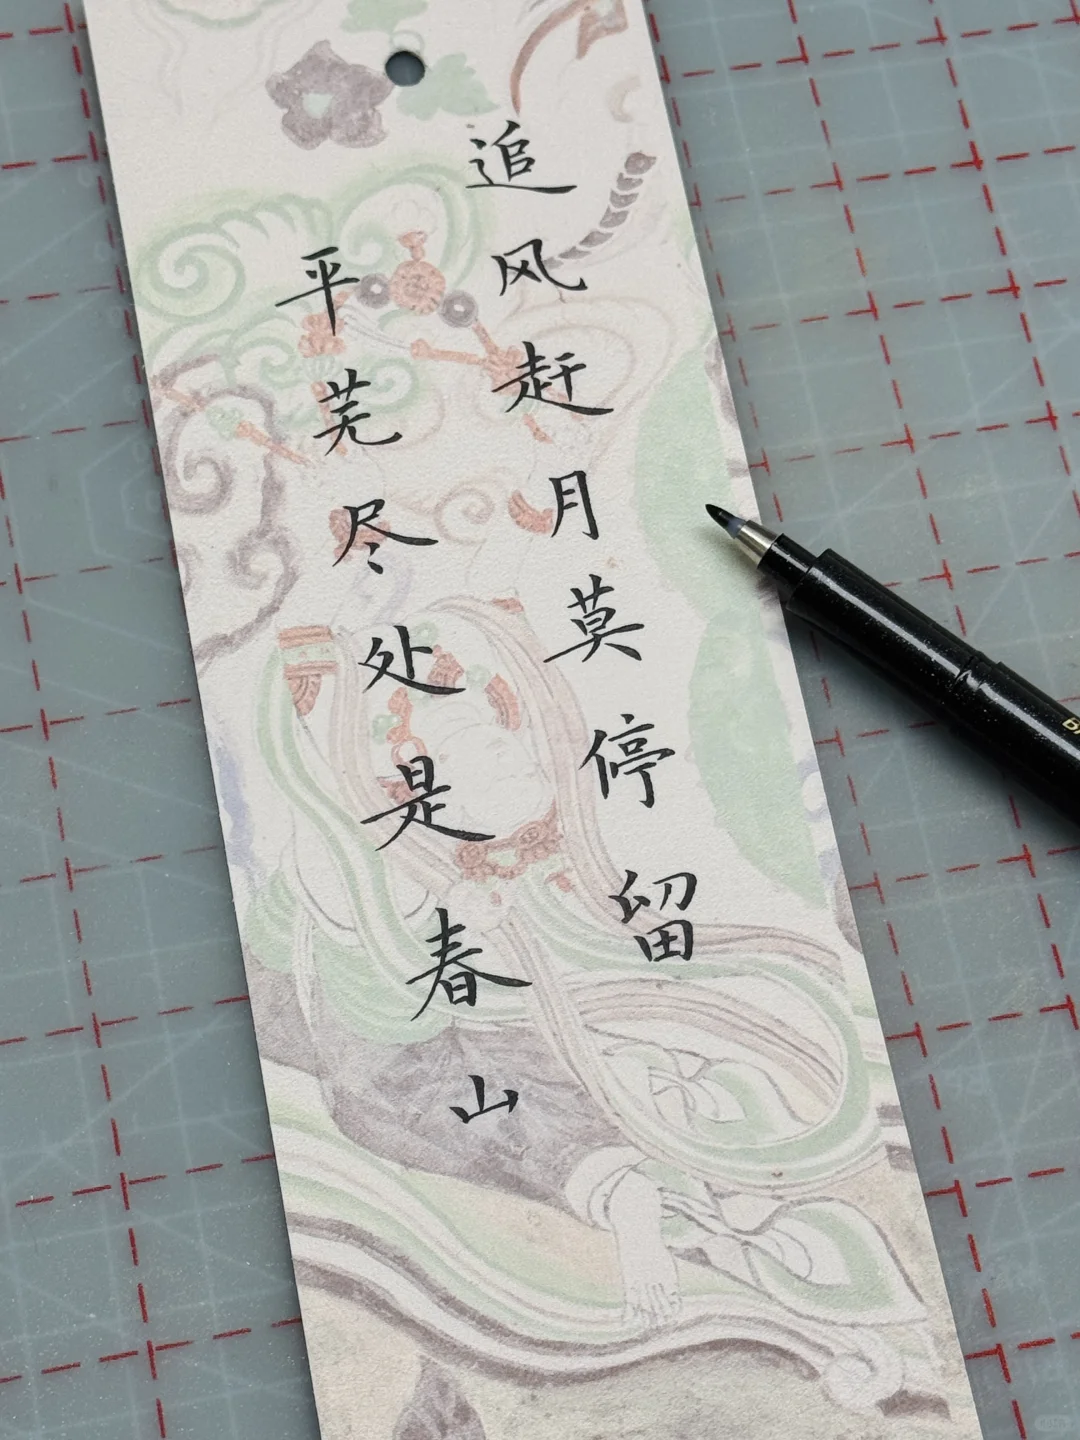 追风赶月莫停留
平芜尽处是春山